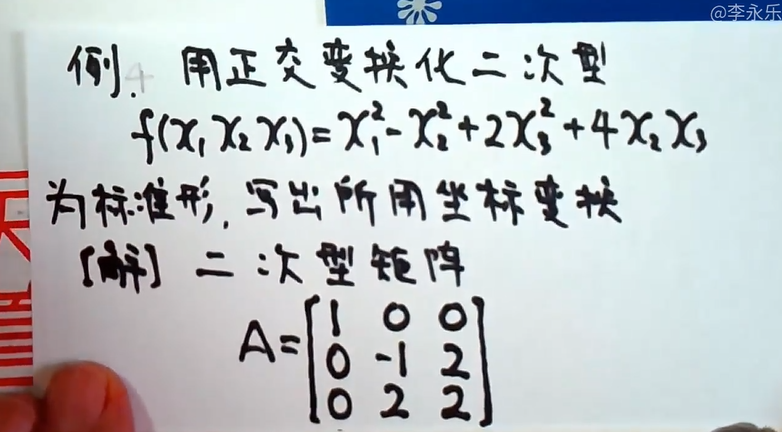 @李永乐
例4. 用正交变换化二次型
f(x₁x₂x₃)=x₁²-x₂²+2x₃²+4x₂x₃
为标准形,写出所用坐标变换
[解] 二次型矩阵
A=[1 0 0
0 -1 2
0 2 2]